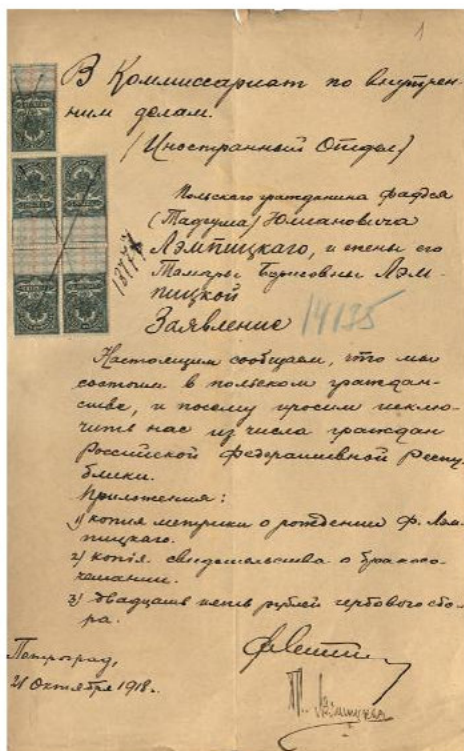 1
В Коммиссариат по внутрен-
ним делам.
(Иностранный Отдел)
Польского гражданина Фаддея
(Тадеуша) Юлиановича
Лэмпицкого, и жены его
Тамары Борисовны Лэм-
пицкой
Заявление
14135
Настоящим сообщаем, что мы
состоим в польском граждан-
стве, и посему просим исклю-
чить нас из числа граждан
Российской Федеративной Респу-
блики.
Приложения:
1) копия метрики о рождении Ф. Лэм-
пицкого.
2) копія свидетельства о бракосо-
четании.
3) двадцать пять рублей гербового сбо-
ра.
Петроград,
21 Октября 1918.